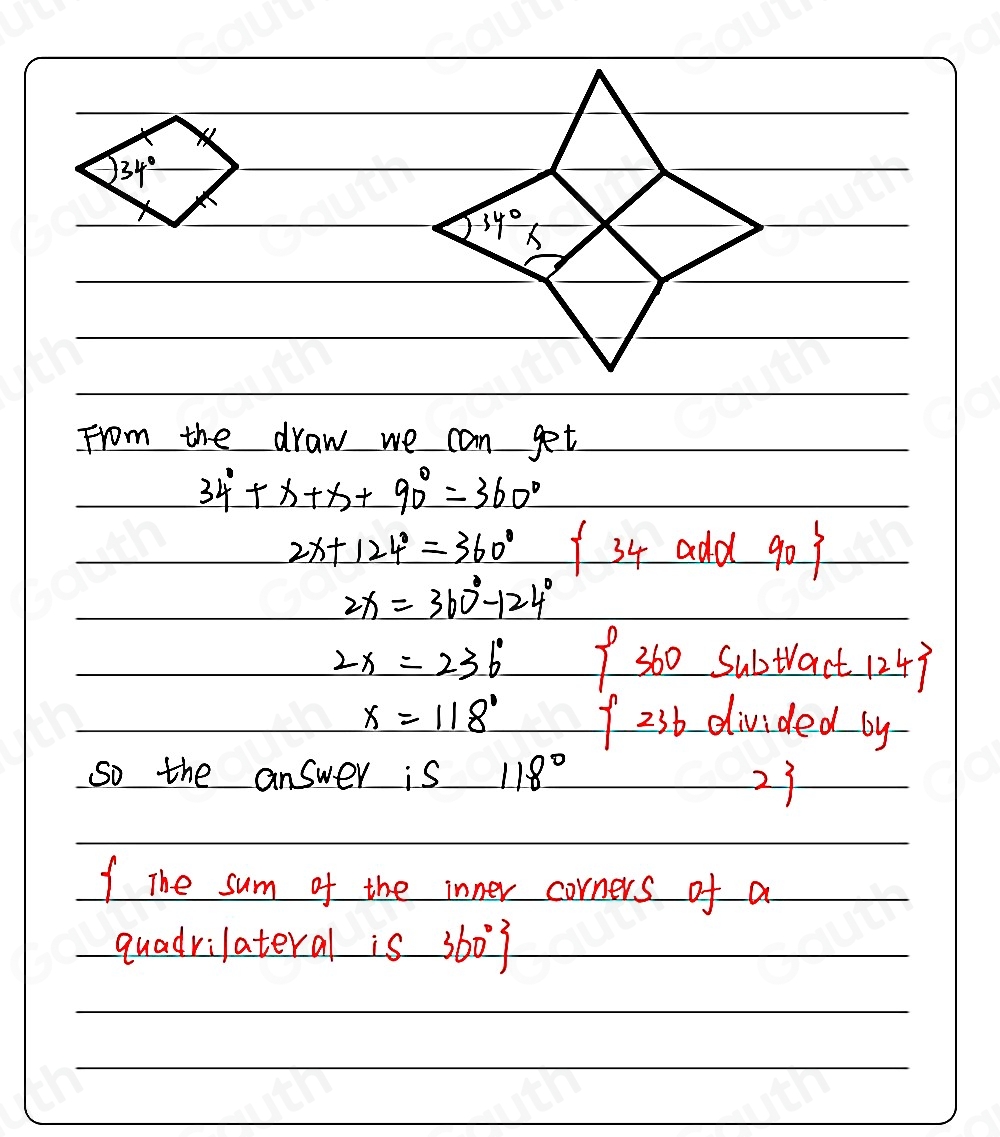 34°
34° x
From the draw we can get
34° + x + x + 90° = 360°
2x + 124° = 360° { 34 add 90 }
2x = 360° - 124°
2x = 236° { 360 Subtract 124 }
x = 118° { 236 divided by
so the answer is 118° 2 }
{ The sum of the inner corners of a
quadrilateral is 360° }
Gauth